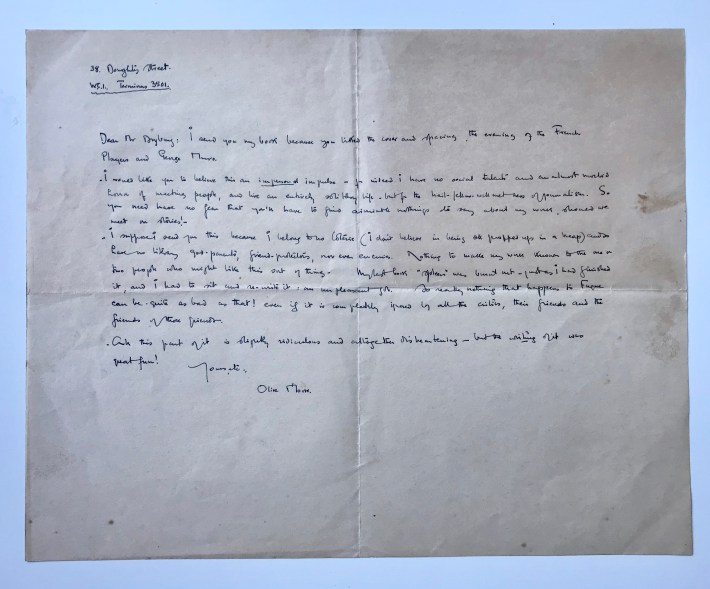 38. Doughty Street.
W.C.1. Terminus 3501.
Dear Mr : I send you my book because you liked the cover and spacing, the evening of the French
Players and George Moore.
- I would like you to believe this an impersonal impulse - for indeed I have no social talents and an almost morbid
horror of meeting people, and live an entirely solitary life - but for the hail-fellow-well-met-ness of journalism. So
you need have no fear that you'll have to find amicable nothings to say about my work, should we
meet on stories! -
- I suppose I send you this because I belong to no (I don't believe in being all propped up in a heap) and so
have no literary god-parents, friend-publishers, nor even enemies. Nothing to make my work known to the one or
two people who might like this sort of thing. My last book "Spleen" was burnt out - just as I had finished
it, and I had to sit and re-write it: an unpleasant job. So really nothing that happens to Fugue
can be quite as bad as that! even if it is completely ignored by all the critics, their friends and the
friends of their friends.
- Only this part of it is slightly ridiculous and altogether disheartening - but the writing of it was
great fun!
Yours etc.
Olive Moore.